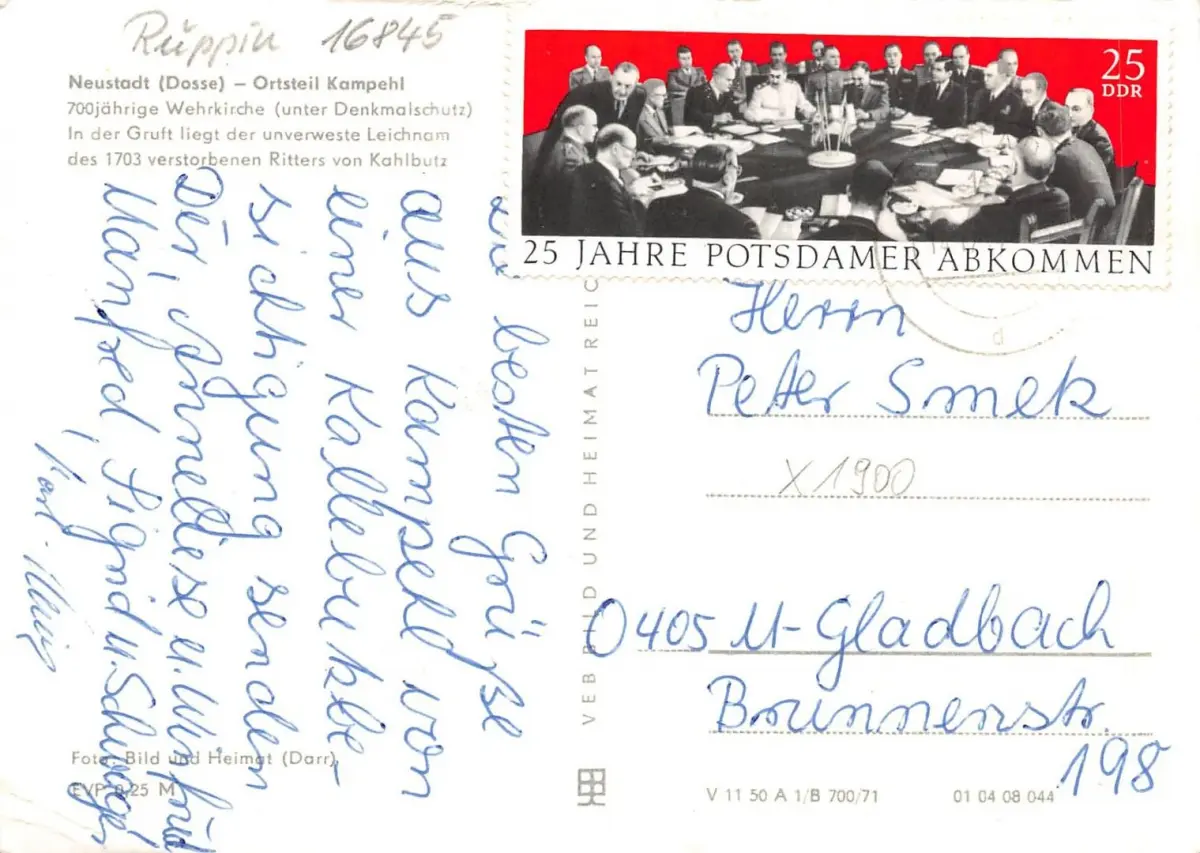 Rüppin 16845
Neustadt (Dosse) – Ortsteil Kampehl
700jährige Wehrkirche (unter Denkmalschutz)
In der Gruft liegt der unverweste Leichnam
des 1703 verstorbenen Ritters von Kahlbutz
25
DDR
25 JAHRE POTSDAMER ABKOMMEN
d
besten Grüße
aus Kampehl von
einer Kallebutzbe-
sichtigung senden
Dir, Anneliese u. Winfried
Manfred, Sigrid u. Schwager
Karl-Heinz
VEB BILD UND HEIMAT REIC
Herrn
Peter Smek
X 1900
0405 M-Gladbach
Brunnenstr.
198
Foto: Bild und Heimat (Darr)
EVP 0,25 M
V 11 50 A 1/B 700/71
01 04 08 044